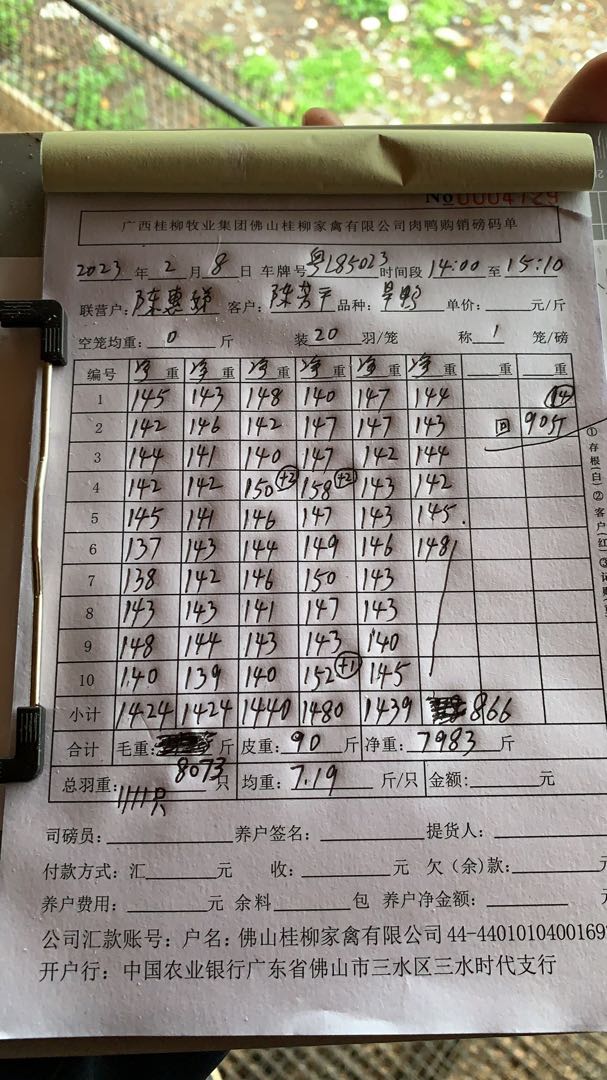 No 0004729
广西桂柳牧业集团佛山桂柳家禽有限公司肉鸭购销磅码单
2023 年 2 月 8 日 车牌号 粤L85023 时间段 14:00 至 15:10
联营户: 陈惠娣 客户: 陈芳平 品种: 旱鸭 单价: 元/斤
空笼均重: 0 斤 装 20 羽/笼 称 1 笼/磅
编号 净重 净重 净重 净重 净重 净重 重 重
1 145 143 148 140 147 144 14
2 142 146 142 147 147 143 回 90斤
3 144 141 140 147 142 144
4 142 142 150 +2 158 +2 143 142
5 145 141 146 147 143 145.
6 137 143 144 149 146 148
7 138 142 146 150 143
8 143 143 141 147 143
9 148 144 143 143 140
10 140 139 140 152 +1 145
小计 1424 1424 1440 1480 1439 866
合计 毛重: 8073 斤 皮重: 90 斤 净重: 7983 斤
总羽重: 1111只 只 均重: 7.19 斤/只 金额: 元
司磅员: 养户签名: 提货人:
付款方式: 汇 元 收: 元 欠(余)款: 元
养户费用: 元 余料 包 养户净金额: 元
公司汇款账号: 户名: 佛山桂柳家禽有限公司 44-4401010400169
开户行: 中国农业银行广东省佛山市三水区三水时代支行
①存根(白)②客户(红)③